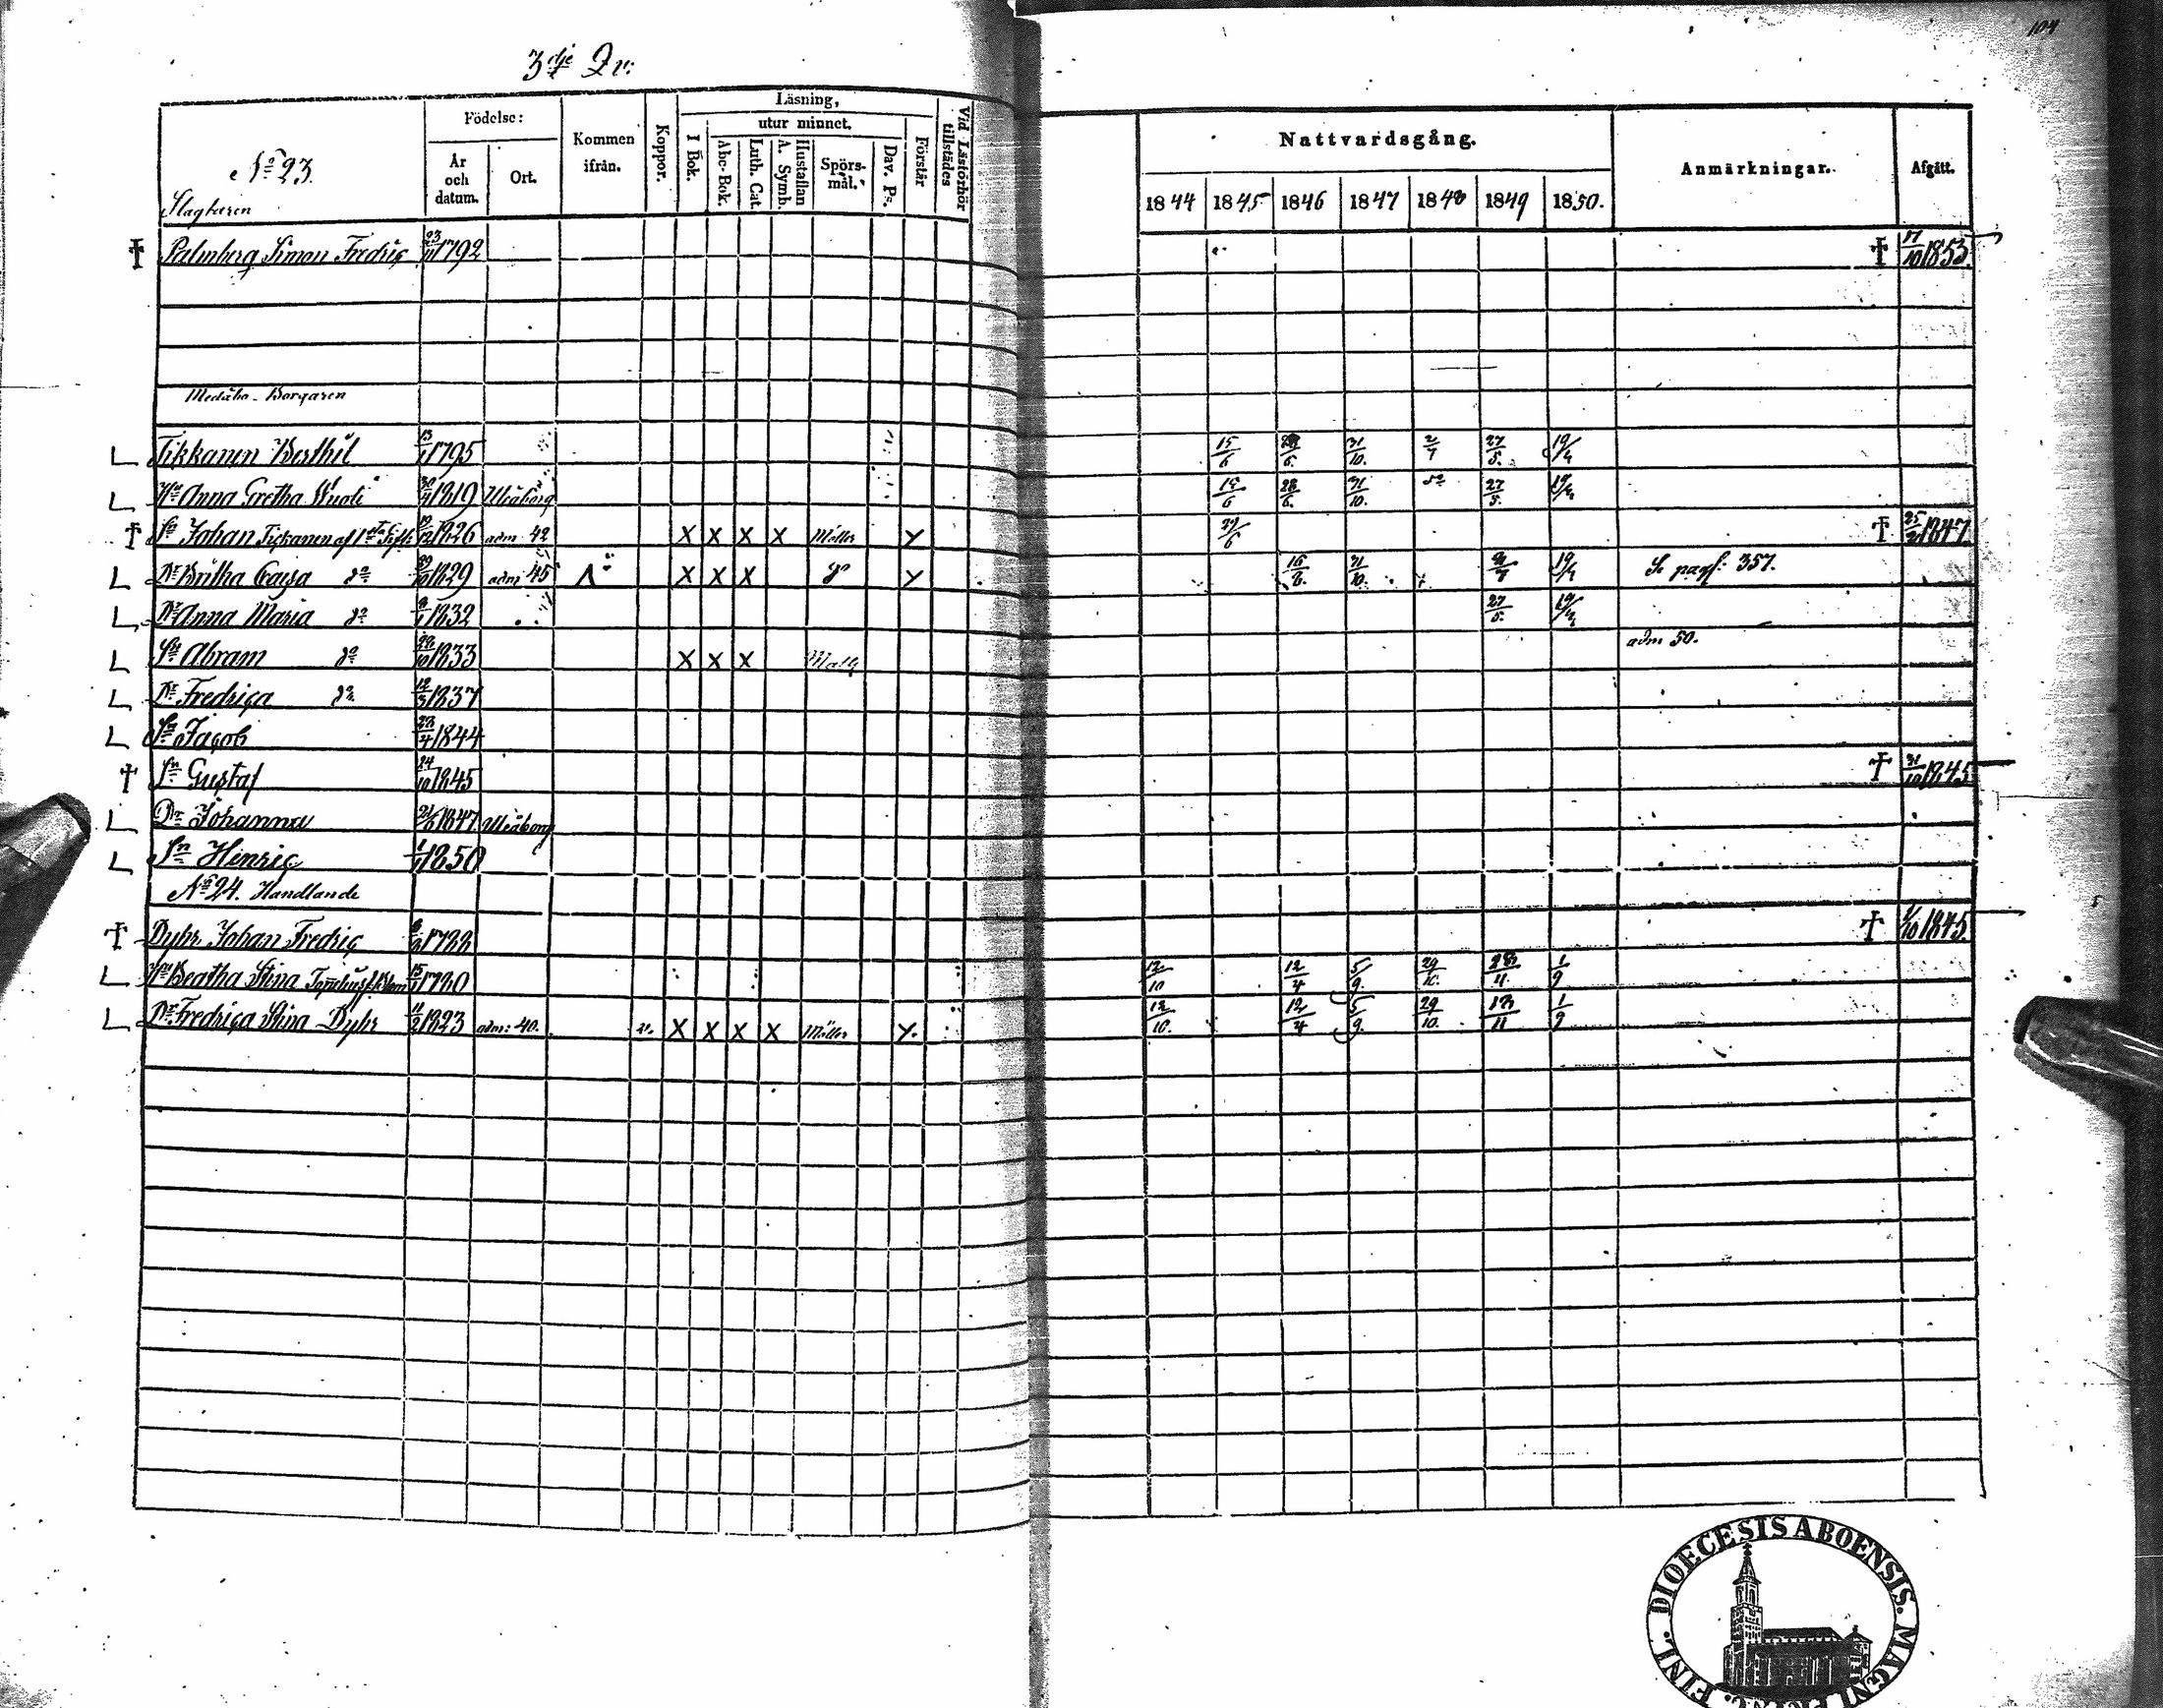 104
3dje Qv:
Nº 23.
Slagtaren
Födelse:
År och datum.
Ort.
Kommen ifrån.
Koppor.
Läsning,
I Bok.
utur minnet.
Abc-Bok.
Luth. Cat.
A. Symb. Hustaflan
Spörsmål.
Dav. Ps.
Förstår
Vid Läsförhör tillstädes
Nattvardsgång.
1844 1845 1846 1847 1848 1849 1850.
Anmärkningar.
Afgått.
† Palmberg Simon Fredric 23/11 1792 † 17/10 1853.
Borgaren
L Tikkanen Berthil 13/1 1795 15/6 31/10. 27/5. 19/4
L Hu Anna Gretha 30/4 1819 Uleåborg 15/6 28/6. 31/10. 27/5. 19/4
† Sn Johan Tickanen af 1sta 1826 adm 42 X X X X Möller Y † 1847.
L Dr Britha Cajsa do 29/10 1829 adm 45 X X X do Y 31/10. 19/4 Se pag: 357.
L Dr Anna Maria do 1832 27/5. 19/4
L Sn Abram do 1833 X X X adm 50.
L Dr Fredrica do 12/3 1837
L Sn Jacob 23/4 1844
† Sn Gustaf 24/10 1845 † 31/10 1845
L Dr Johanna 1847 Uleåborg
L Sn Henric 1/1 1850
Nº 24. Handlande
† Dyhr Johan Fredric 1788 † 1845.
L Hu Beatha Stina 1780 12/10 12/4 5/9. 29/10. 1/9
L Dr Fredrica Stina Dyhr 11/2 1823 adm: 40. v. X X X X Möller Y. 12/10. 12/4 5/9. 29/10. 1/9
DIOECESIS ABOENSIS. MAGNI
FINL.